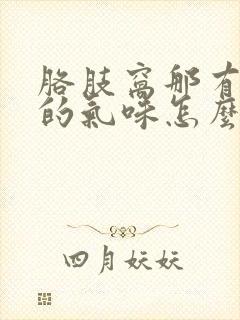 胳肢窩那有
的氣味怎麼
四月妖妖